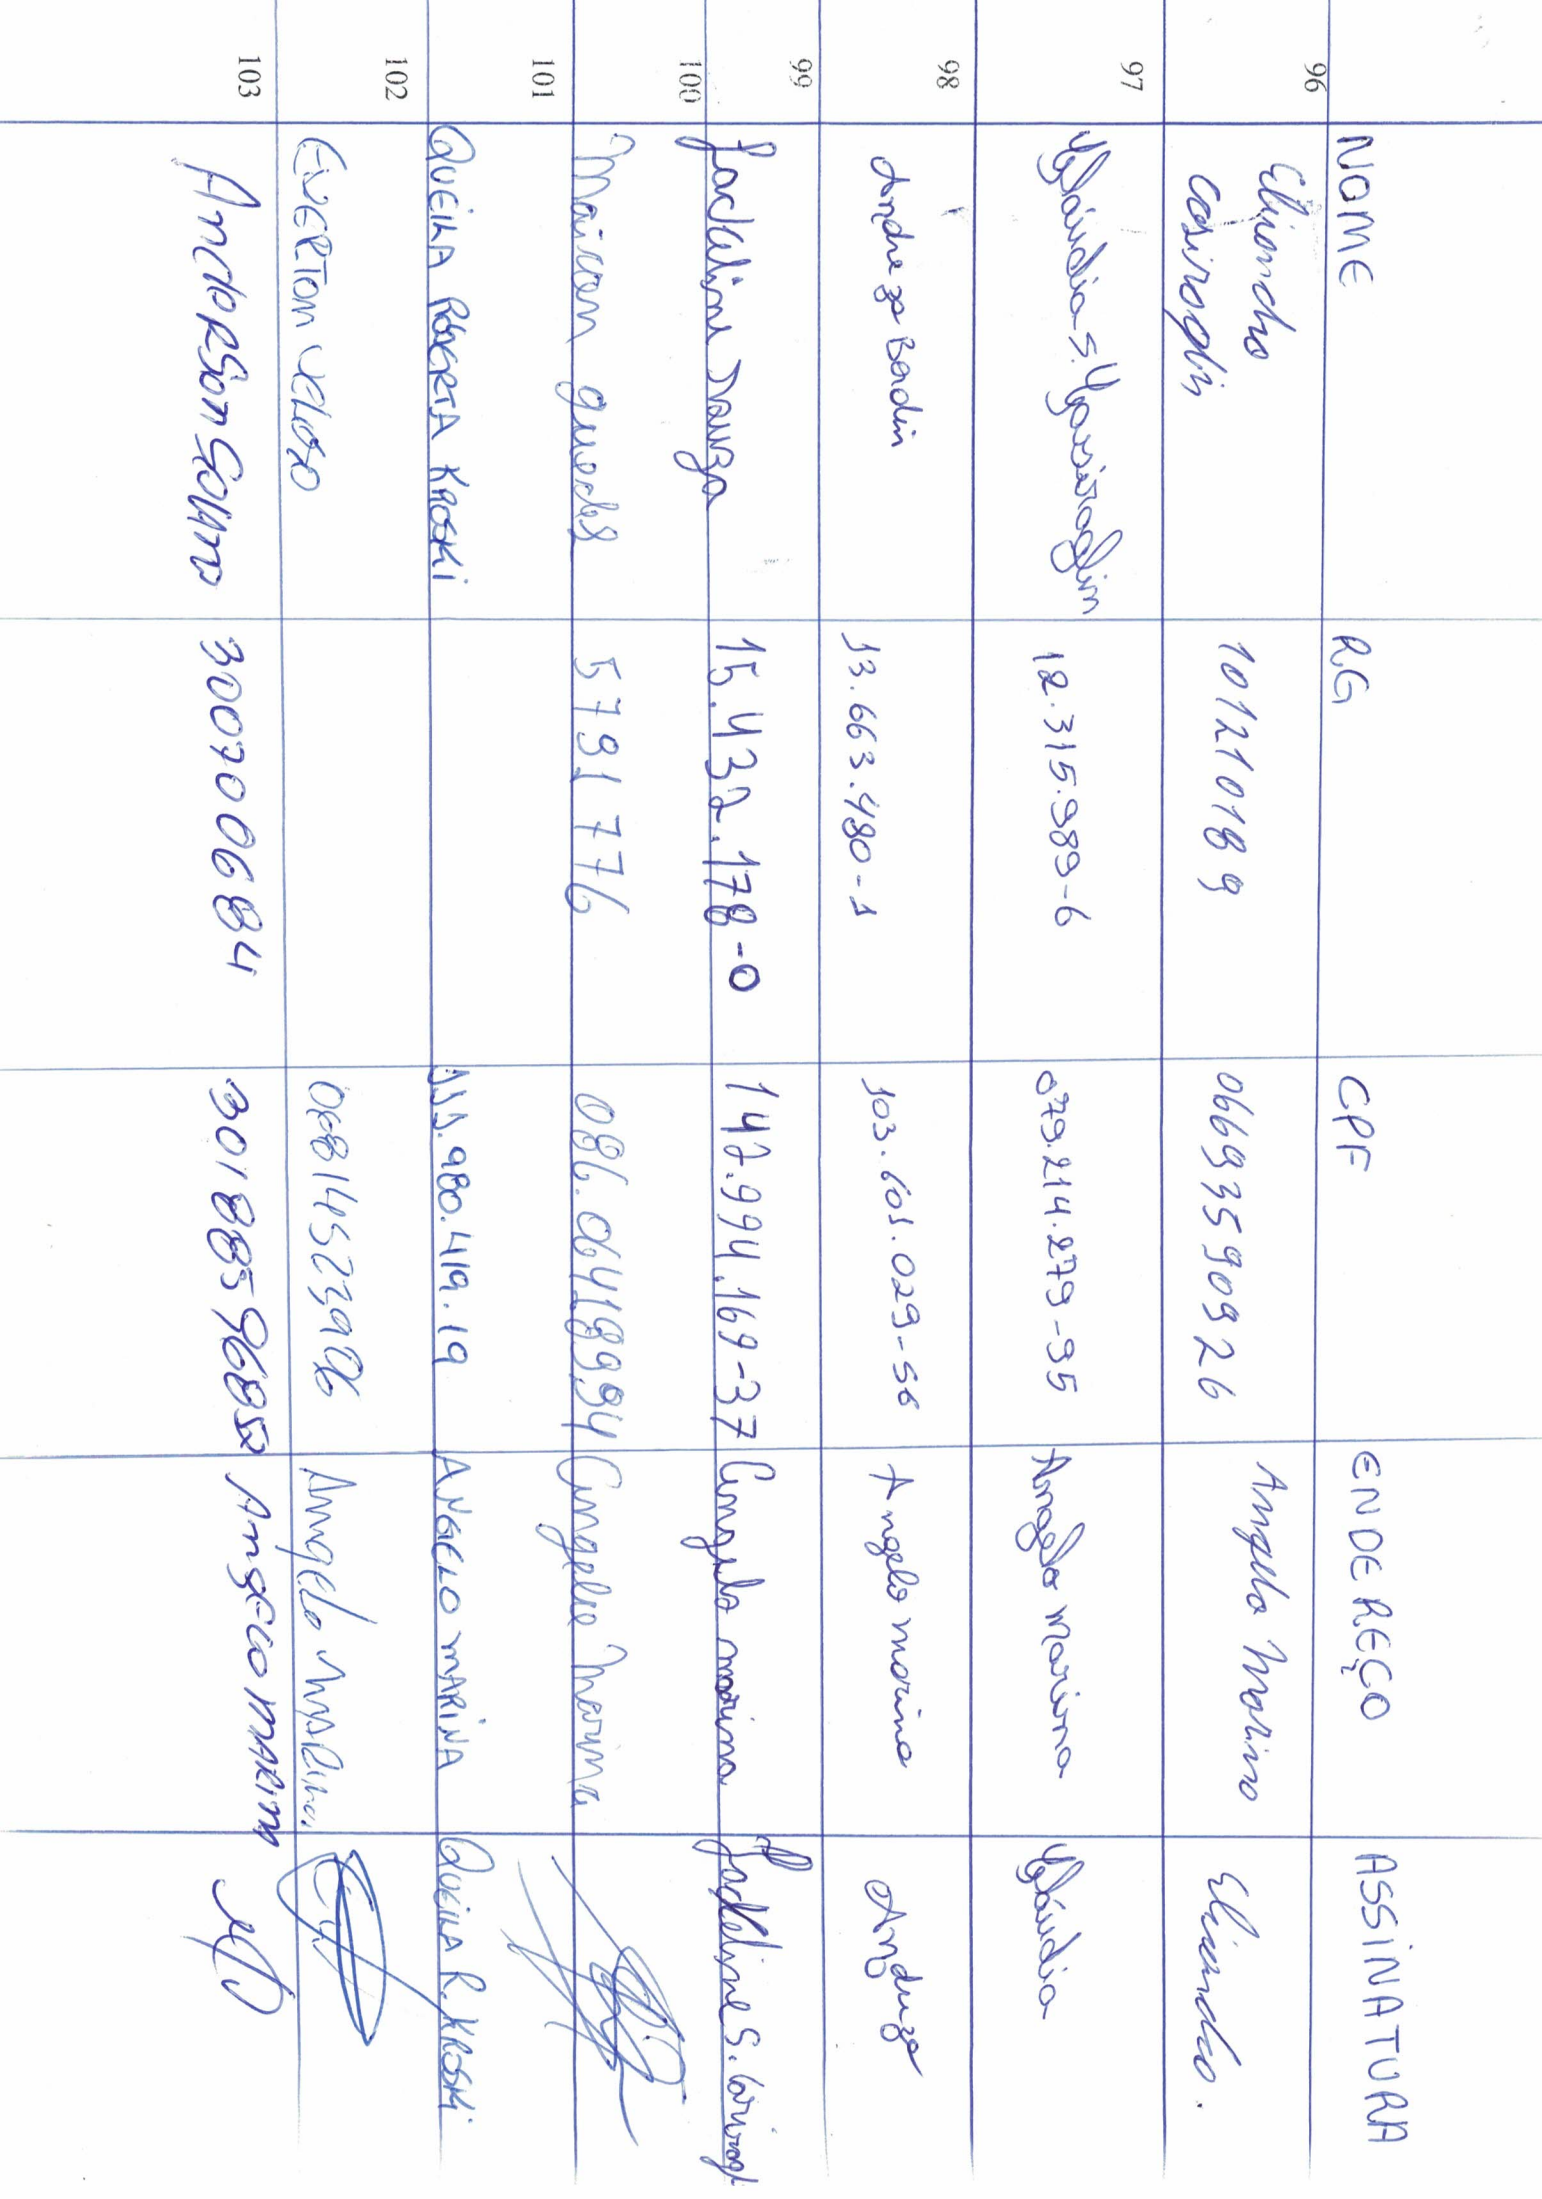 96 NOME RG CPF ENDEREÇO ASSINATURA
Elisandro 101210189 06693590926 Angelo Marina Elisandro.
Casiraghi
97 Cláudia S. Casiraghim 12.315.989-6 079.214.279-95 Angelo Marina Cláudia
98 Andreza Bordin 13.663.480-1 103.601.029-56 Angelo marina Andreza
99
100 Jackeline Souza 15.432.178-0 147.994.169-37 Angelo marina Jackeline S.
Maicon guedes 5791776 086.064189.94 Angelo Marina
101 QUEILA ROBERTA KROSKI 111.980.419.19 ANGELO MARINA QUEILA R. KROSKI
102 EVERTON VELOSO 06814523906 Angelo MARINA
103 ANDERSON 300700684 Angelo MARINA